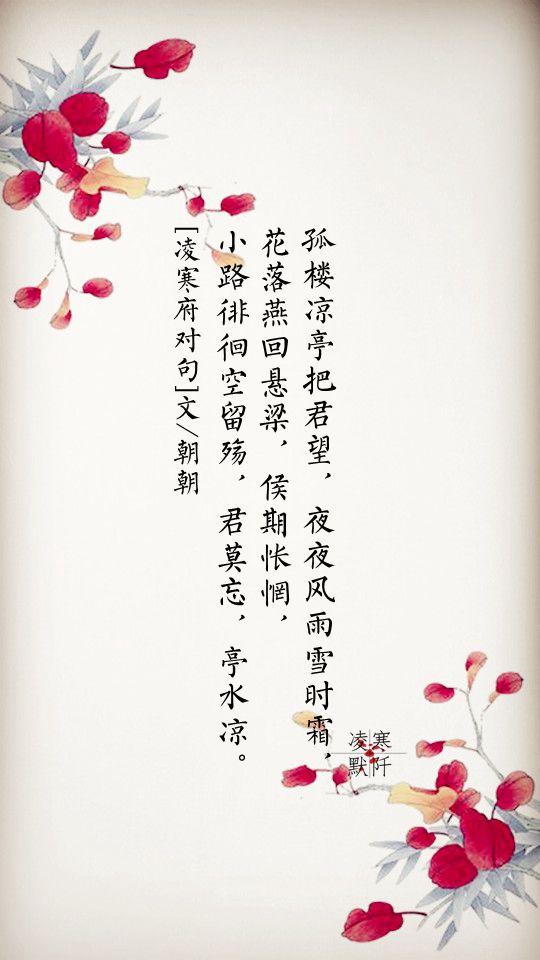 孤楼凉亭把君望，夜夜风雨雪时霜，
花落燕回悬梁，侯期怅惘，
小路徘徊空留殇，君莫忘，亭水凉。
[凌寒府对句]文/朝朝
凌寒
默阡